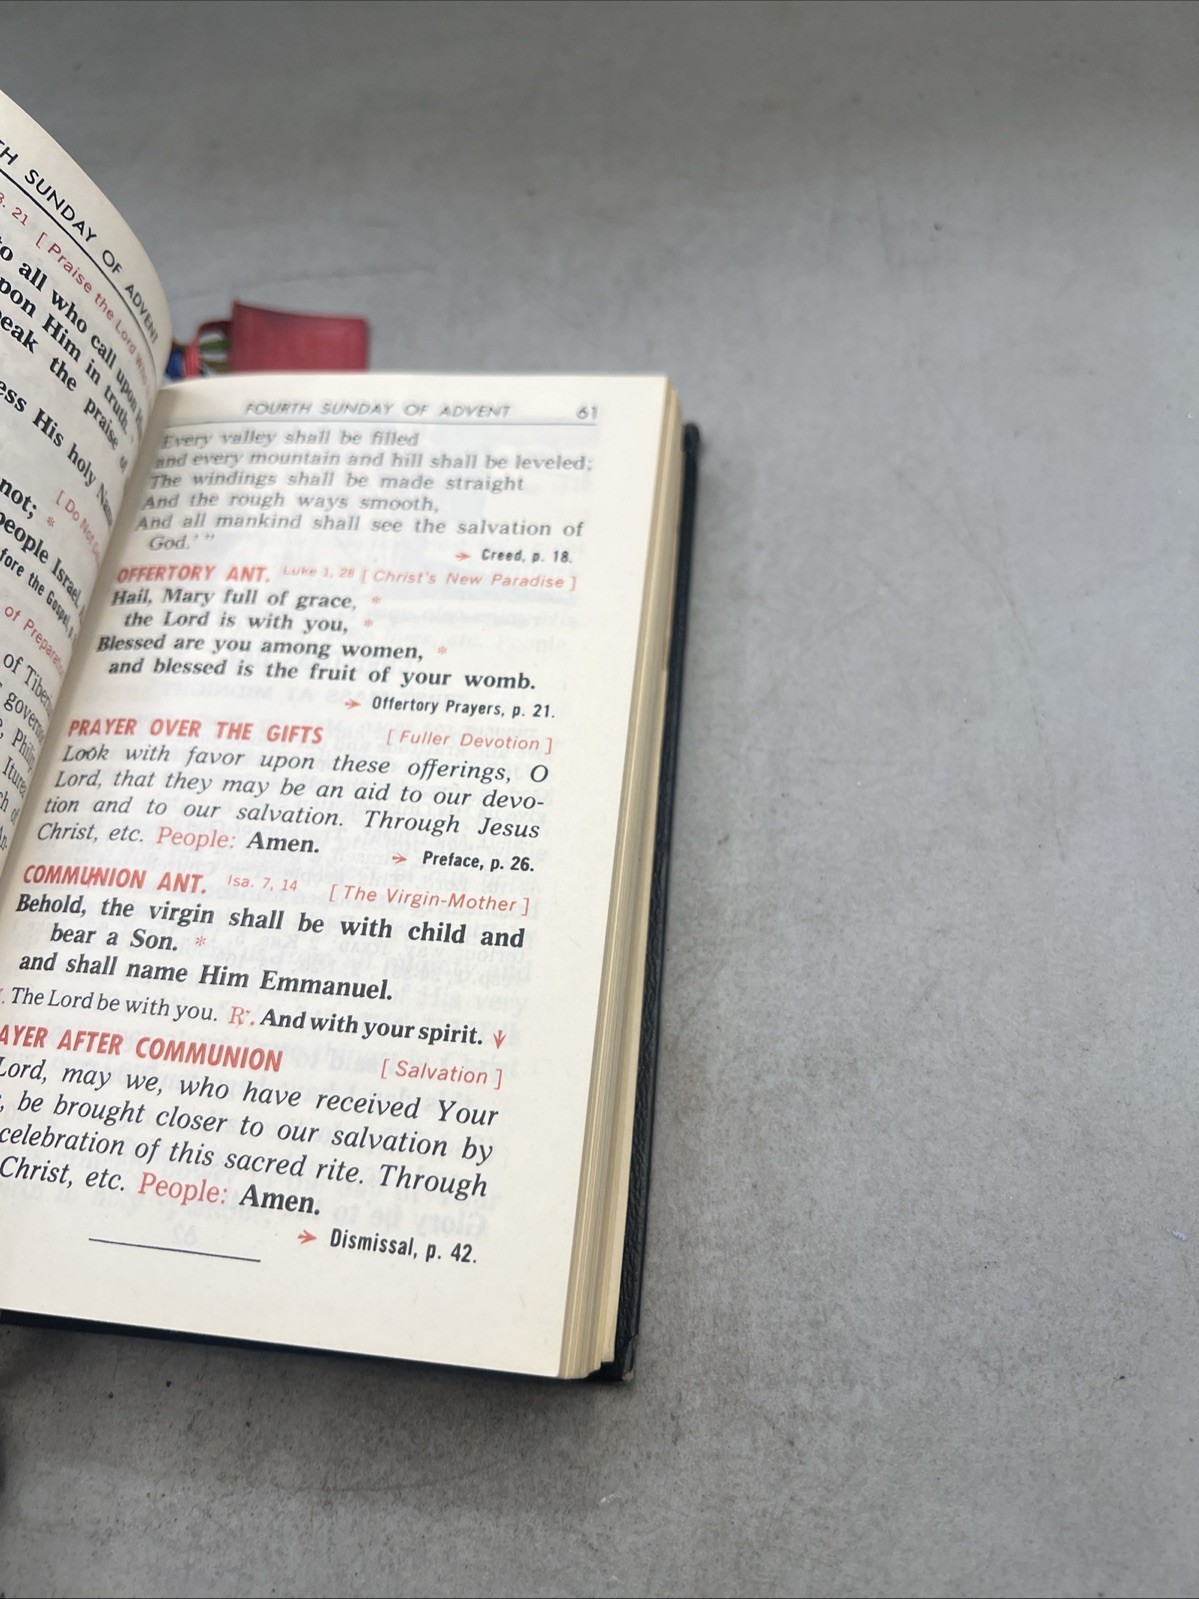 TH SUNDAY OF ADVENT
3. 21 [ Praise the Lord Who
to all who call upon
pon Him in truth.
peak the praise of
ess His holy Name
not; *
[ Do Not
people Israel,
fore the Gospel,
of Preparation
of Tiber
govern
Philip
Iturea
FOURTH SUNDAY OF ADVENT 61
Every valley shall be filled
and every mountain and hill shall be leveled;
The windings shall be made straight
And the rough ways smooth,
And all mankind shall see the salvation of
God.' "
→ Creed, p. 18.
OFFERTORY ANT. Luke 1, 28 [ Christ's New Paradise ]
Hail, Mary full of grace, *
the Lord is with you, *
Blessed are you among women, *
and blessed is the fruit of your womb.
→ Offertory Prayers, p. 21.
PRAYER OVER THE GIFTS [ Fuller Devotion ]
Look with favor upon these offerings, O
Lord, that they may be an aid to our devo-
tion and to our salvation. Through Jesus
Christ, etc. People: Amen.
→ Preface, p. 26.
COMMUNION ANT. Isa. 7, 14 [ The Virgin-Mother ]
Behold, the virgin shall be with child and
bear a Son. *
and shall name Him Emmanuel.
. The Lord be with you. R℣. And with your spirit. ↓
AYER AFTER COMMUNION [ Salvation ]
Lord, may we, who have received Your
, be brought closer to our salvation by
celebration of this sacred rite. Through
Christ, etc. People: Amen.
→ Dismissal, p. 42.